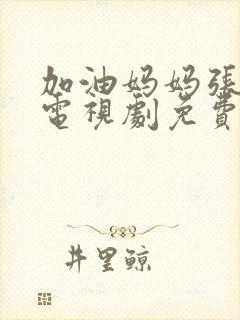 加油妈妈张
電視劇免費
井里鲸